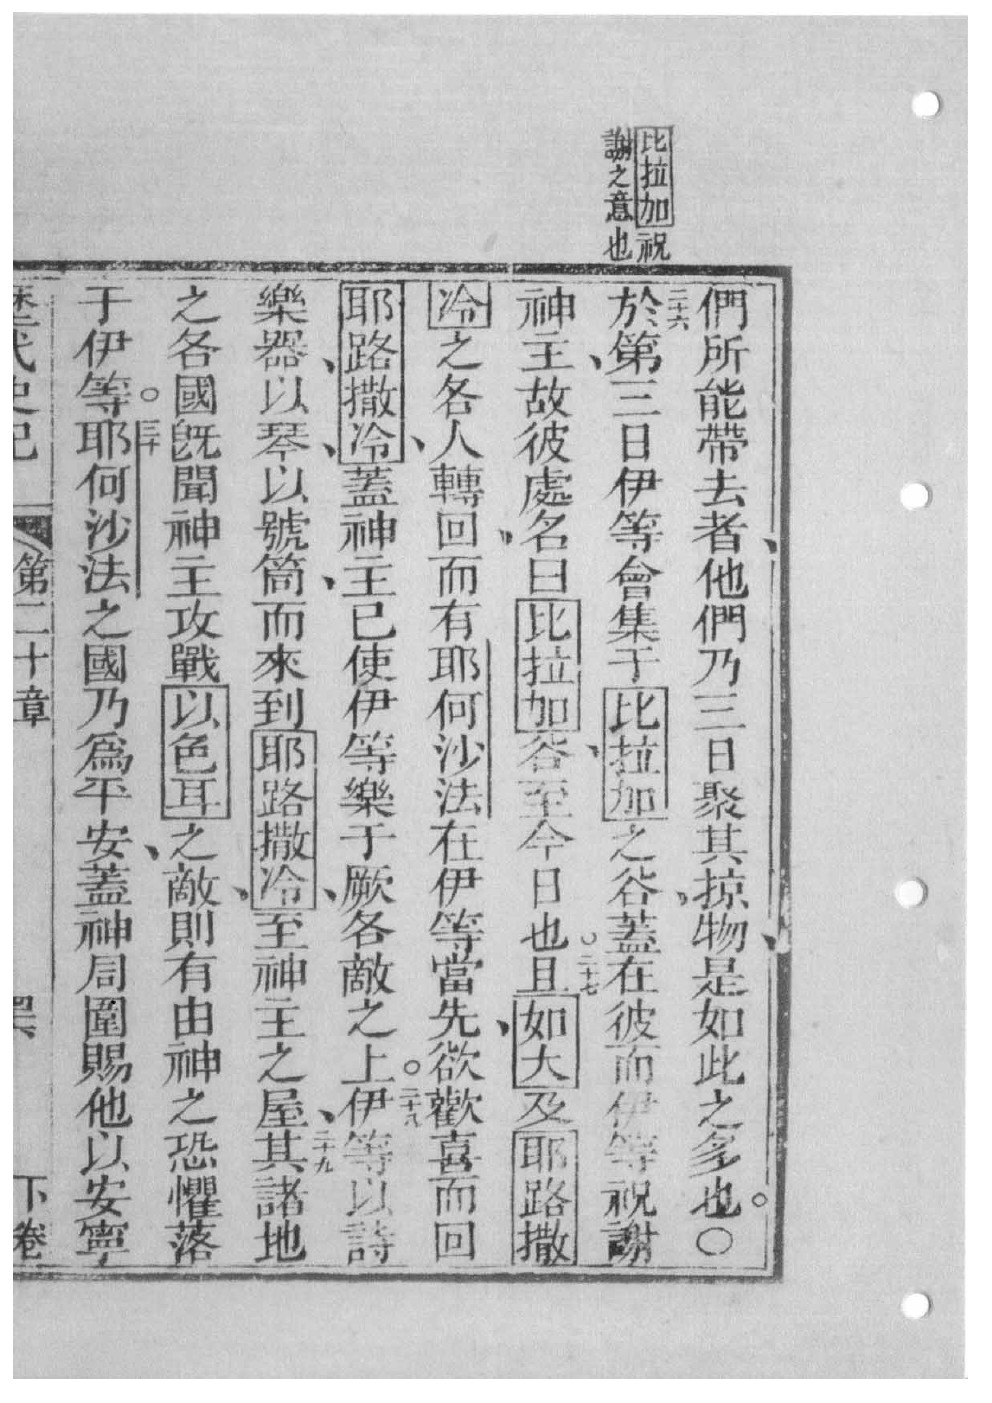 比拉加祝
謝之意也
們所能帶去者、他們乃三日聚其掠物、是如此之多也。〇
二十六於第三日伊等會集于比拉加之谷、蓋在彼而伊等祝謝
神主、故彼處名曰比拉加谷、至今日也。二十七且如大及耶路撒
冷之各人轉回、而有耶何沙法在伊等當先、欲歡喜而回
耶路撒冷、蓋神主已使伊等樂于厥各敵之上。二十八伊等以詩
樂器、以琴、以號筒、而來到耶路撒冷、至神主之屋、二十九其諸地
之各國旣聞神主攻戰以色耳之敵、則有由神之恐懼落
于伊等。三十耶何沙法之國乃爲平安、蓋神周圍賜他以安寧
歷代史記 第二十章 下卷